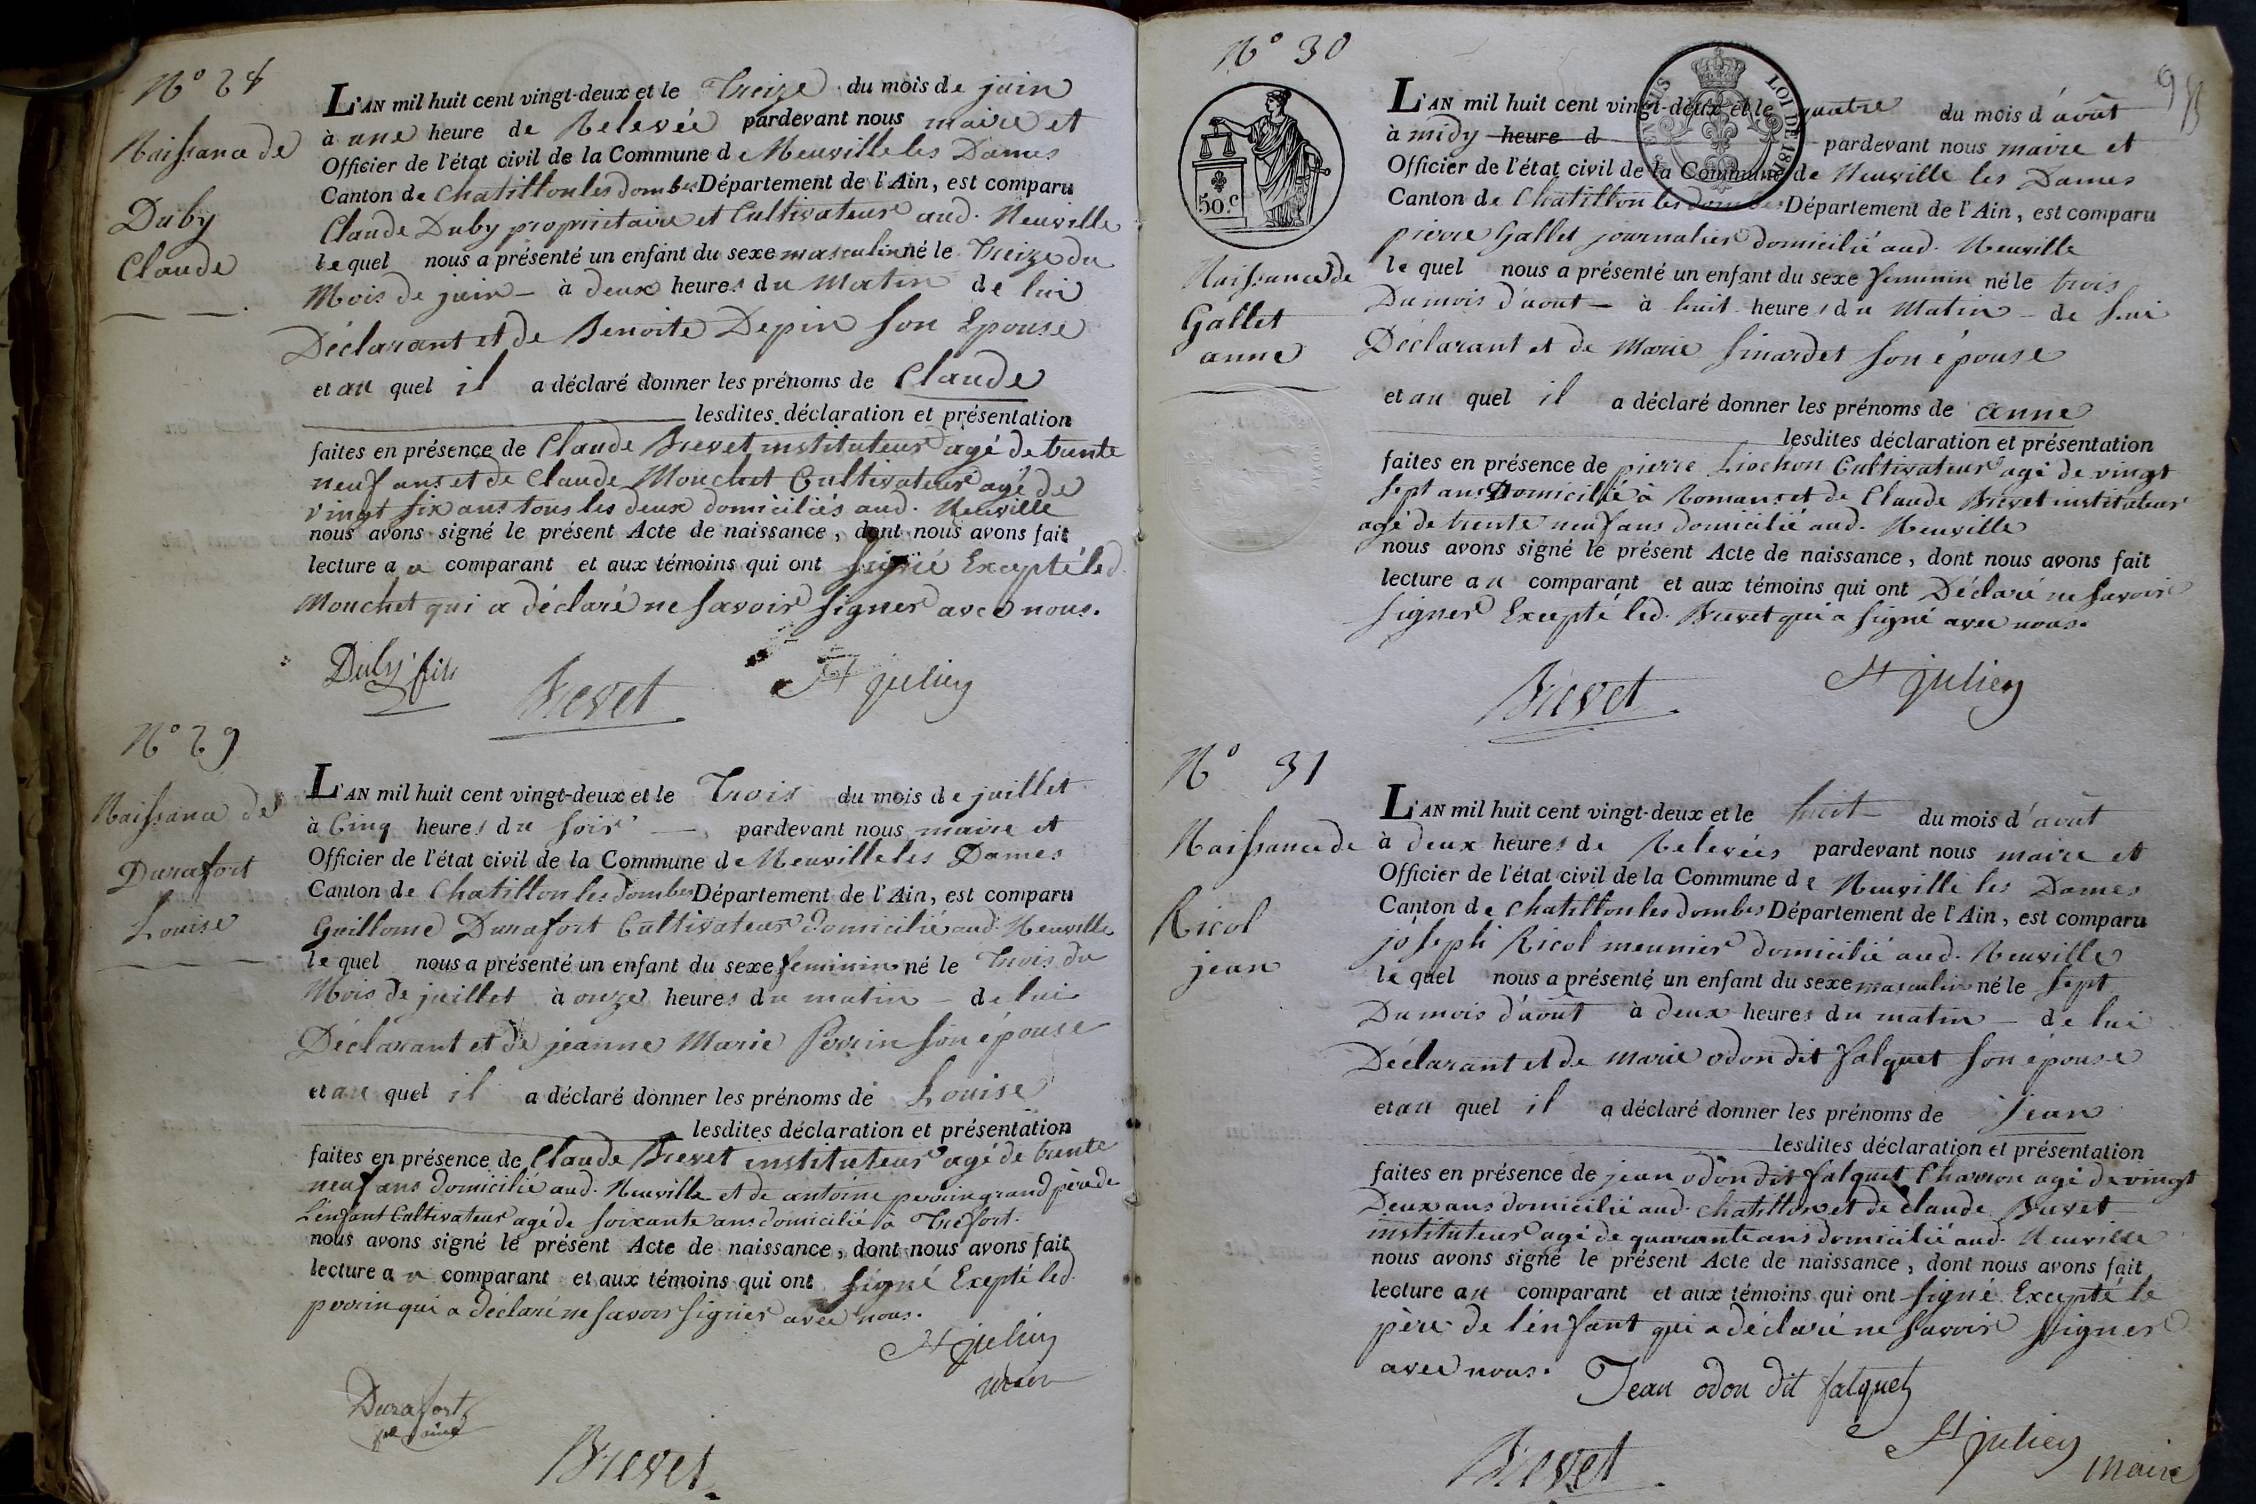 N° 28
Naissance de
Duby
Claude
L'AN mil huit cent vingt-deux et le Treize du mois de juin
à une heure de Relevée pardevant nous maire et
Officier de l'état civil de la Commune de Neuville les Dames
Canton de Chatillon les dombes Département de l'Ain, est comparu
Claude Duby propriétaire et Cultivateur aud. Neuville
lequel nous a présenté un enfant du sexe masculin né le Treize du
Mois de juin - à deux heures du Matin de lui
Déclarant et de Benoite Depin son Epouse
et au quel il a déclaré donner les prénoms de Claude
lesdites déclaration et présentation
faites en présence de Claude Brevet instituteur agé de trente
neuf ans et de Claude Mouchet Cultivateur agé de
vingt six ans tous les deux domiciliés aud. Neuville
nous avons signé le présent Acte de naissance, dont nous avons fait
lecture au comparant et aux témoins qui ont signé Excepté led.
Mouchet qui a déclaré ne savoir signer avec nous.
Duby fils
Brevet
St julien
N° 29
Naissance de
Durafort
Louise
L'AN mil huit cent vingt-deux et le Trois du mois de juillet
à Cinq heures du soir - pardevant nous maire et
Officier de l'état civil de la Commune de Neuville les Dames
Canton de Chatillon les dombes Département de l'Ain, est comparu
Guillome Durafort Cultivateur domicilié aud. Neuville
lequel nous a présenté un enfant du sexe feminin né le Trois du
Mois de juillet à onze heures du matin - de lui
Déclarant et de jeanne Marie Perrin son épouse
et au quel il a déclaré donner les prénoms de Louise
lesdites déclaration et présentation
faites en présence de Claude Brevet instituteur agé de trente
neuf ans domicilié aud. Neuville et de antoine perrin grand père de
L'enfant Cultivateur agé de soixante ans domicilié à Trefort.
nous avons signé le présent Acte de naissance, dont nous avons fait
lecture au comparant et aux témoins qui ont signé Exepté led.
perrin qui a déclaré ne savoir signer avec nous.
St julien
Durafort
Brevet
N° 30
95
50.c
LOI DE 181
Naissance de
Gallet
anne
L'AN mil huit cent vingt-deux et le quatre du mois d'août
à midy heure d pardevant nous maire et
Officier de l'état civil de la Commune de Neuville les Dames
Canton de Chatillon les dombes Département de l'Ain, est comparu
pierre Gallet journalier domicilié aud. Neuville
lequel nous a présenté un enfant du sexe feminin né le trois
Du mois d'aout - à huit heures du Matin - de lui
Déclarant et de Marie Sinardet son épouse
et au quel il a déclaré donner les prénoms de anne
lesdites déclaration et présentation
faites en présence de pierre Liochon Cultivateur agé de vingt
sept ans Domicilié à Romans et de Claude Brevet instituteur
agé de trente neuf ans domicilié aud. Neuville
nous avons signé le présent Acte de naissance, dont nous avons fait
lecture au comparant et aux témoins qui ont Déclaré ne savoir
signer Excepté led. Brevet qui a signé avec nous.
Brevet
St julien
N° 31
Naissance de
Ricol
jean
L'AN mil huit cent vingt-deux et le huit du mois d'août
à deux heures de Relevées pardevant nous maire et
Officier de l'état civil de la Commune de Neuville les Dames
Canton de Chatillon les dombes Département de l'Ain, est comparu
joseph Ricol meunier domicilié aud. Neuville
lequel nous a présenté un enfant du sexe masculin né le sept
Du mois d'août à deux heures du matin - de lui
Déclarant et de Marie odon dit falquet son épouse
et au quel il a déclaré donner les prénoms de jean
lesdites déclaration et présentation
faites en présence de jean odon dit falquet Charron agé de vingt
Deux ans domicilié aud. Chatillon et de Claude Brevet
instituteur agé de quarante ans domicilié aud. Neuville
nous avons signé le présent Acte de naissance, dont nous avons fait
lecture au comparant et aux témoins qui ont signé Excepté le
père de l'enfant qui a déclaré ne savoir signer
avec nous.
Jean odon dit falquet
Brevet
St julien
maire